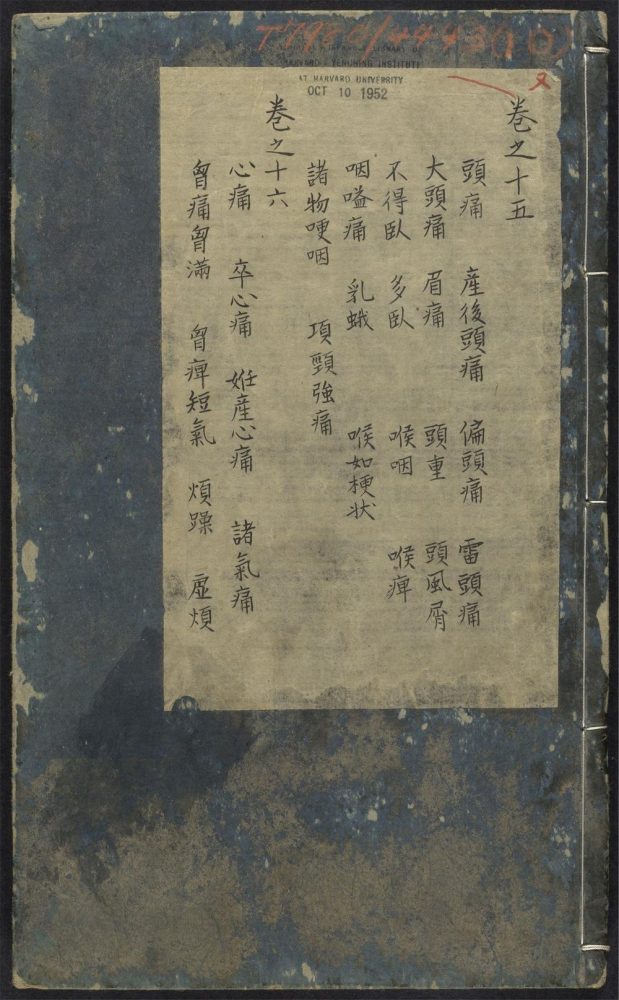 T7980/4443(10)
HARVARD-YENCHING INSTITUTE
AT HARVARD UNIVERSITY
OCT 10 1952
卷之十五
頭痛 產後頭痛 偏頭痛 雷頭痛
大頭痛 眉痛 頭重 頭風屑
不得臥 多臥 喉咽 喉痺
咽嗌痛 乳蛾 喉如梗状
諸物哽咽 項頸強痛
卷之十六
心痛 卒心痛 妊產心痛 諸氣痛
胷痛胷滿 胷痺短氣 煩躁 虛煩